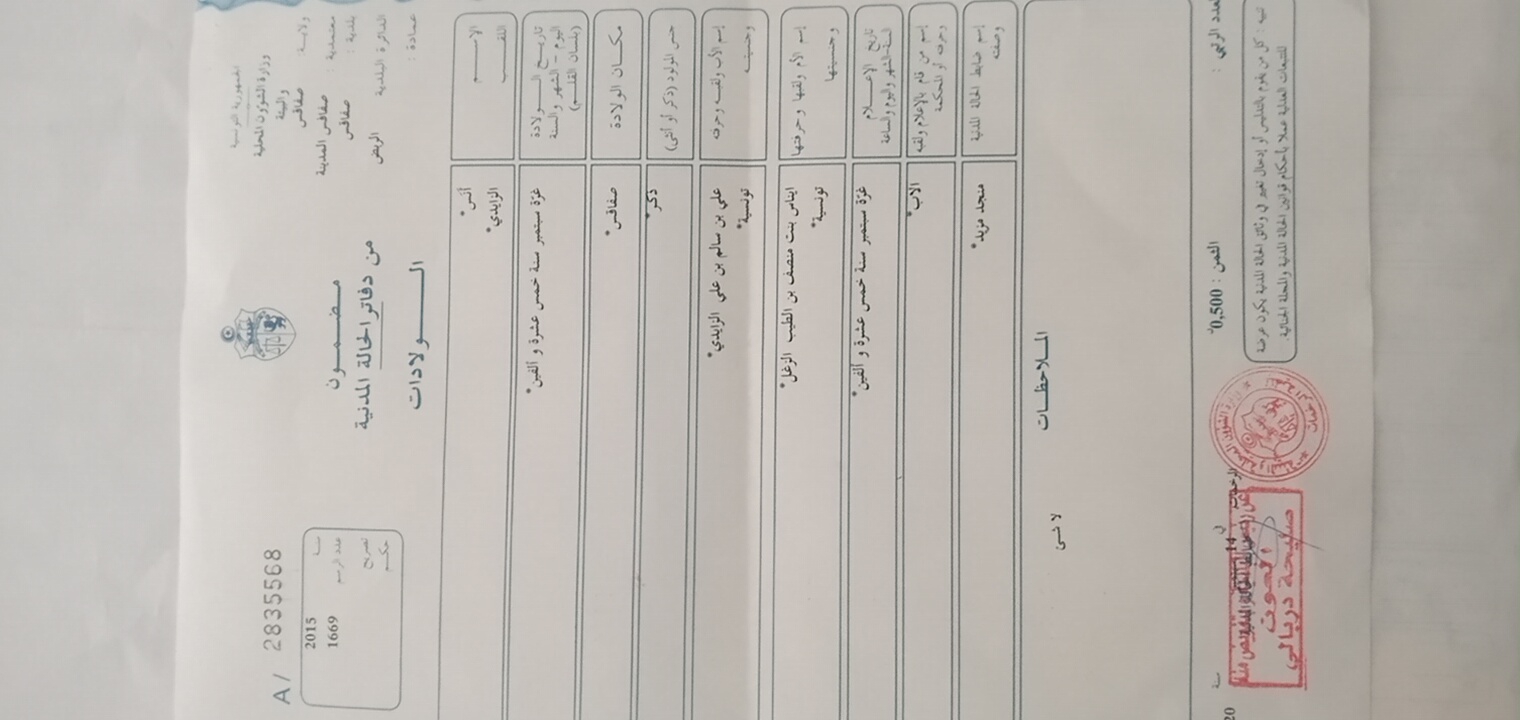 الجمهورية التونسية
وزارة الشؤون المحلية
والبيئة
ولاية: صفاقس
معتمدية: صفاقس المدينة
بلدية: صفاقس
الدائرة البلدية الربض
عمادة:
A/ 2835568
سنة 2015
عدد الرسم 1669
تصريح
حكم
مضمون
من دفاتر الحالة المدنية
الولادات
الإسم أنس*
اللقب الزايدي*
تاريخ الولادة
(اليوم - الشهر والسنة
بلسان القلم)
غرّة سبتمبر سنة خمس عشرة و ألفين*
مكان الولادة صفاقس*
جنس المولود (ذكر أو أنثى) ذكر*
إسم الأب ولقبه وحرفته علي بن سالم بن علي الزايدي*
وجنسيته تونسية*
إسم الأم ولقبها وحرفتها ايناس بنت منصف بن الطيب الزغل*
وجنسيتها تونسية*
تاريخ الإعلام
السنة-الشهر واليوم والساعة
غرّة سبتمبر سنة خمس عشرة و ألفين*
إسم من قام بالإعلام ولقبه
وحرفته أو المحكمة
الاب*
إسم ضابط الحالة المدنية
وصفته
منجد مزيد*
الملاحظات
لا شئ
العدد الرتبي :
الثمن : 0,500
في 14
سنة 20
صبيحة دربالي
تنبيه : كل من يقوم بالتدليس أو إدخال تغيير في وثائق الحالة المدنية يكون عرضة
للتتبعات العدلية عملا بأحكام قوانين الحالة المدنية والمجلة الجنائية.